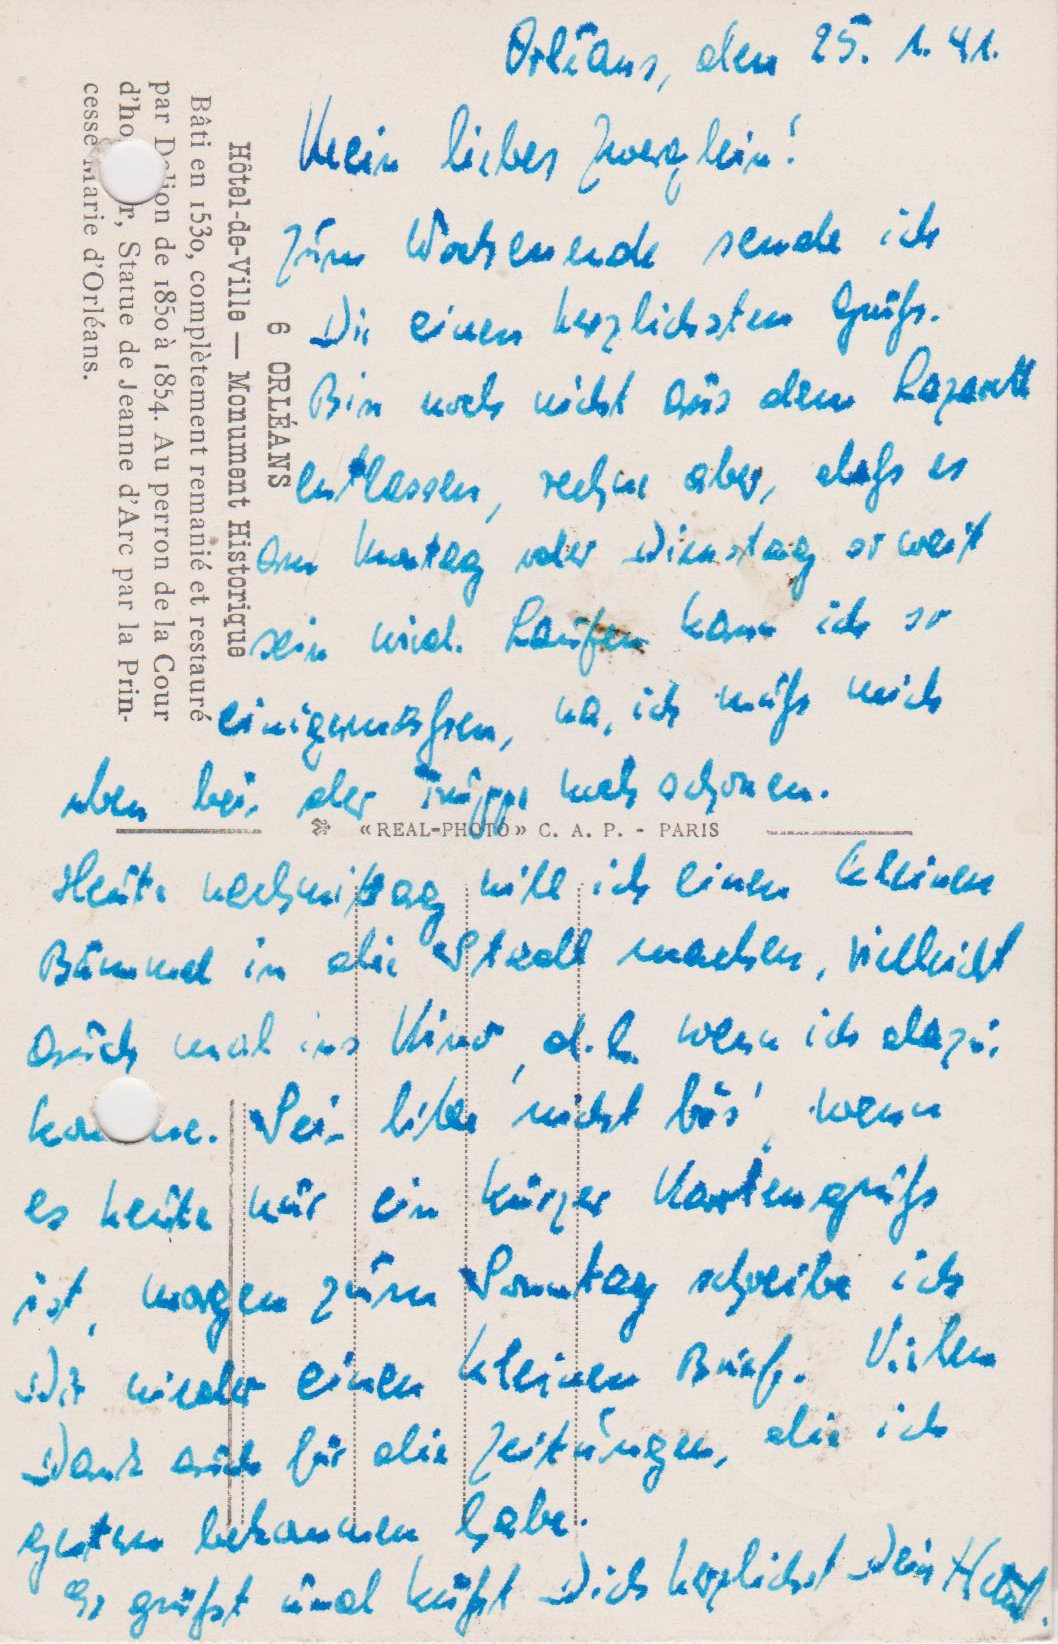 Orléans, den 25. 1. 41.
Mein liebes Zwerglein!
Zum Wochenende sende ich
Dir einen herzlichsten Gruß.
Bin noch nicht aus dem Lazarett
entlassen, rechne aber, daß es
am Montag oder Dienstag so weit
sein wird. Laufen kann ich so
einigermaßen, na, ich muß mich
eben bei der Truppe noch schonen.
Heute nachmittag will ich einen kleinen
Bummel in die Stadt machen, vielleicht
auch mal ins Kino, d.h. wenn ich dazu
komme. Sei bitte nicht bös', wenn
es heute nur ein kurzer Kartengruß
ist, morgen zum Sonntag schreibe ich
Dir wieder einen kleinen Brief. Vielen
Dank auch für die Zeitungen, die ich
gestern bekommen habe.
Es grüßt und küßt Dich herzlichst Dein
6 ORLÉANS
Hôtel-de-Ville — Monument Historique
Bâti en 1530, complètement remanié et restauré
par Delion de 1850 à 1854. Au perron de la Cour
d'honneur, Statue de Jeanne d'Arc par la Prin-
cesse Marie d'Orléans.
«REAL-PHOTO» C. A. P. - PARIS